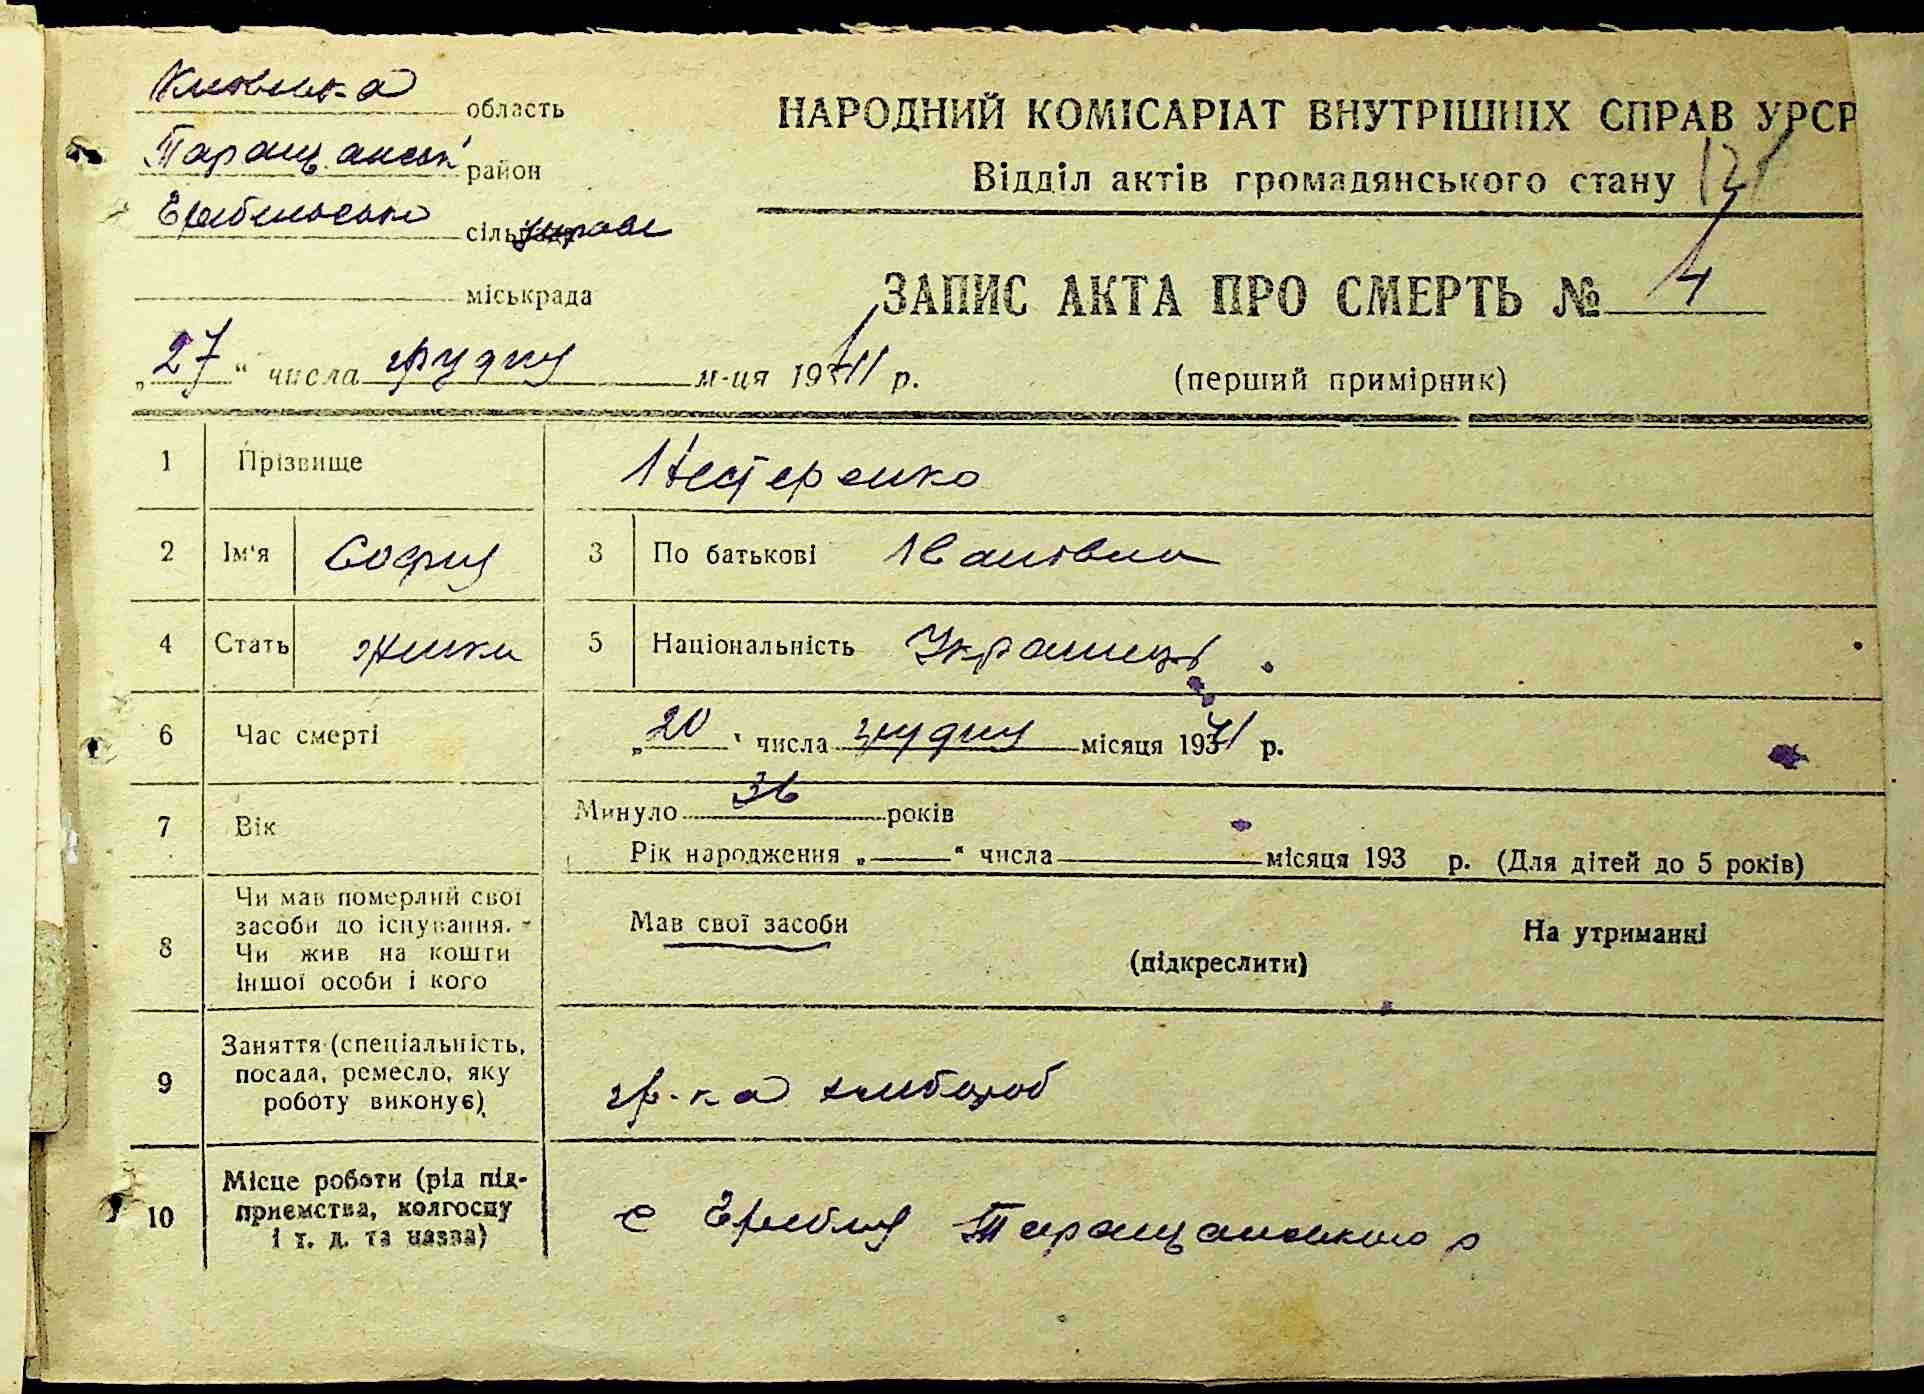 Киевська область
Таращанськ район
сільуправа
міськрада
НАРОДНИЙ КОМІСАРІАТ ВНУТРІШНІХ СПРАВ УРСР
Відділ актів громадянського стану
ЗАПИС АКТА ПРО СМЕРТЬ № 4
„27“ числа грудня м-ця 1941 р.
(перший примірник)
1 Прізвище Нестеренко
2 Ім'я София 3 По батькові Івановна
4 Стать жінка 5 Національність Українц
6 Час смерті „20“ числа грудня місяця 1941 р.
7 Вік Минуло 36 років
Рік народження „ “ числа місяця 193 р. (Для дітей до 5 років)
8 Чи мав померлий свої засоби до існування. Чи жив на кошти іншої особи і кого
Мав свої засоби На утриманні
(підкреслити)
9 Заняття (спеціальність, посада, ремесло, яку роботу виконує) гр-ка хлібороб
10 Місце роботи (рід підприємства, колгоспу і т. д. та назва) с Таращанського р